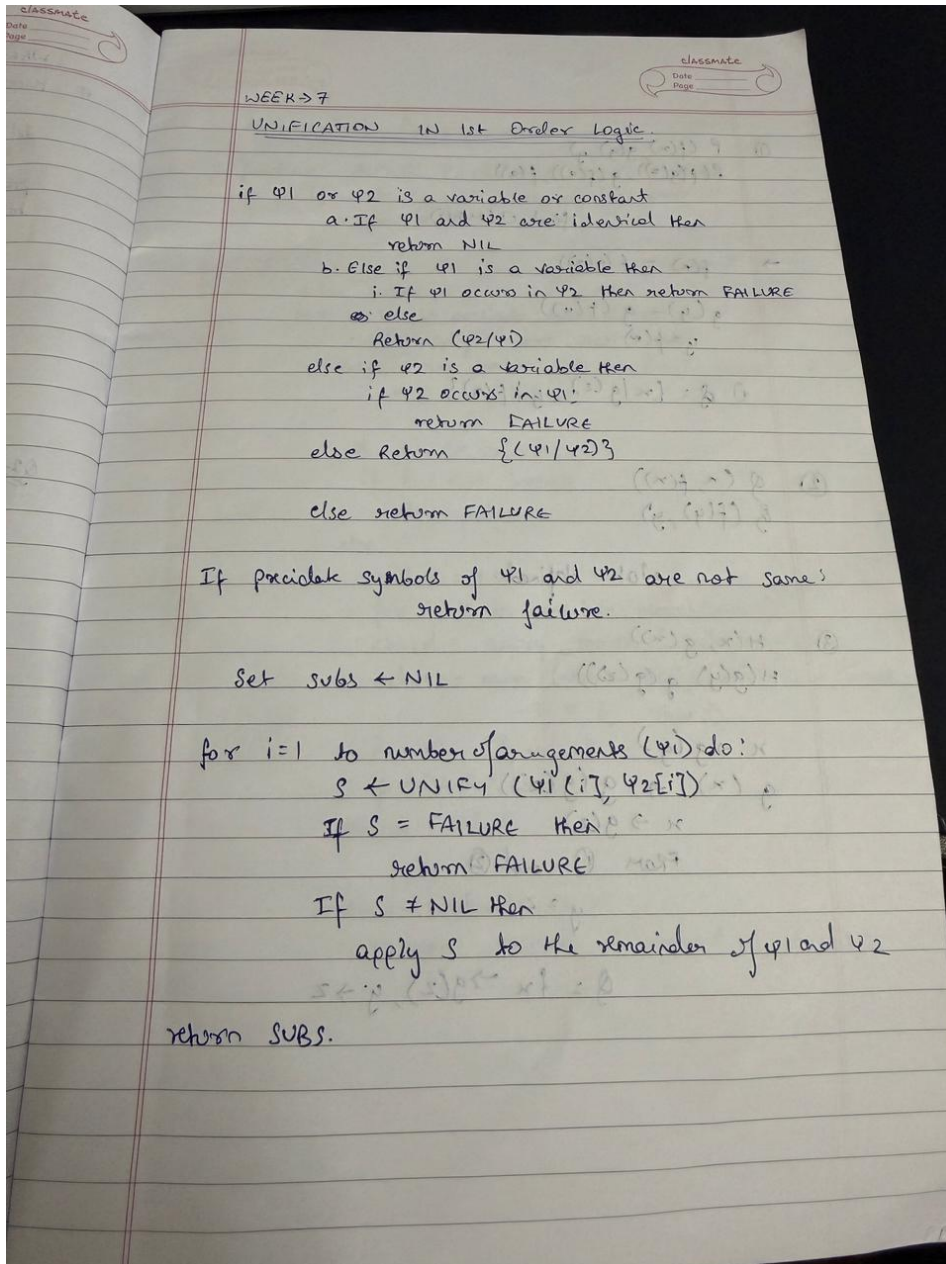 classmate
Date
Page
classmate
Date
Page
WEEK→7
UNIFICATION IN 1st Order Logic.
if Ψ1 or Ψ2 is a variable or constant
a. If Ψ1 and Ψ2 are identical then
return NIL
b. Else if Ψ1 is a variable then
i. If Ψ1 occurs in Ψ2 then return FAILURE
else
Return (Ψ2/Ψ1)
else if Ψ2 is a variable then
if Ψ2 occurs in Ψ1:
return FAILURE
else Return {(Ψ1/Ψ2)}
else return FAILURE
If precidate symbols of Ψ1 and Ψ2 are not same:
return failure.
Set subs ← NIL
for i=1 to number of arugements (Ψi) do:
S ← UNIFY (Ψi[i], Ψ2[i])
If S = FAILURE then
return FAILURE
If S ≠ NIL then
apply S to the remainder of Ψ1 and Ψ2
return SUBS.